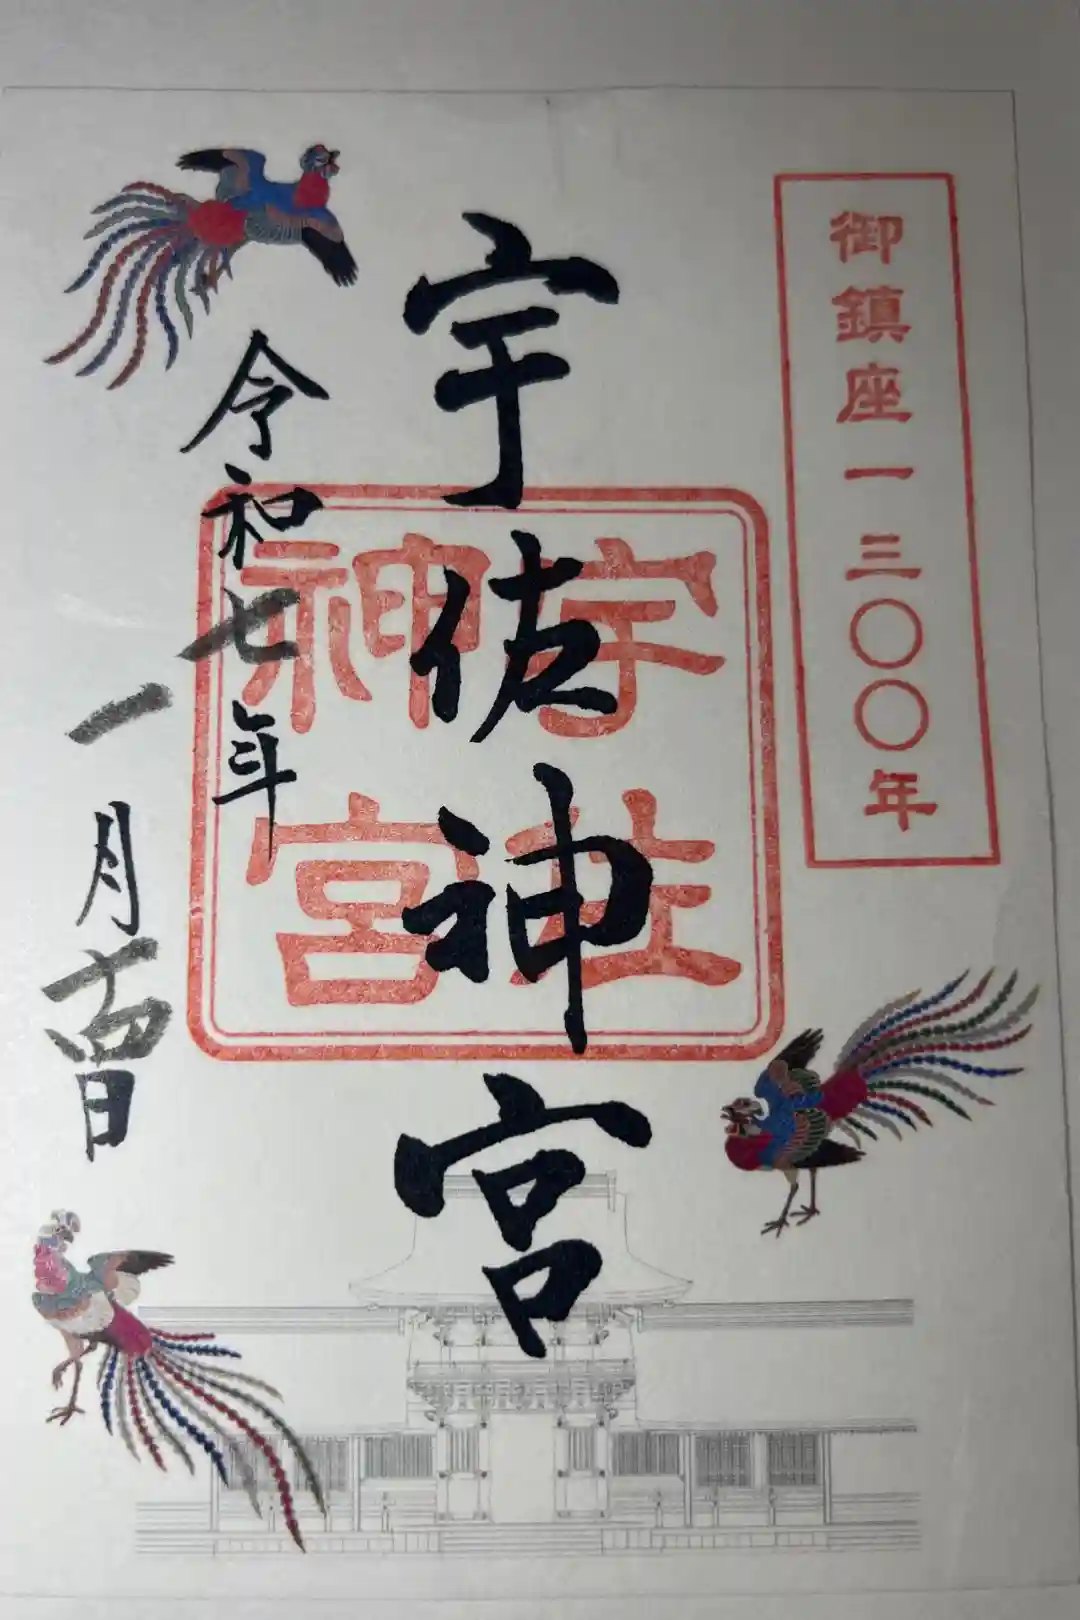 御鎮座一三〇〇年
宇佐神宮
宇佐
神宮
令和七年
一月十四日